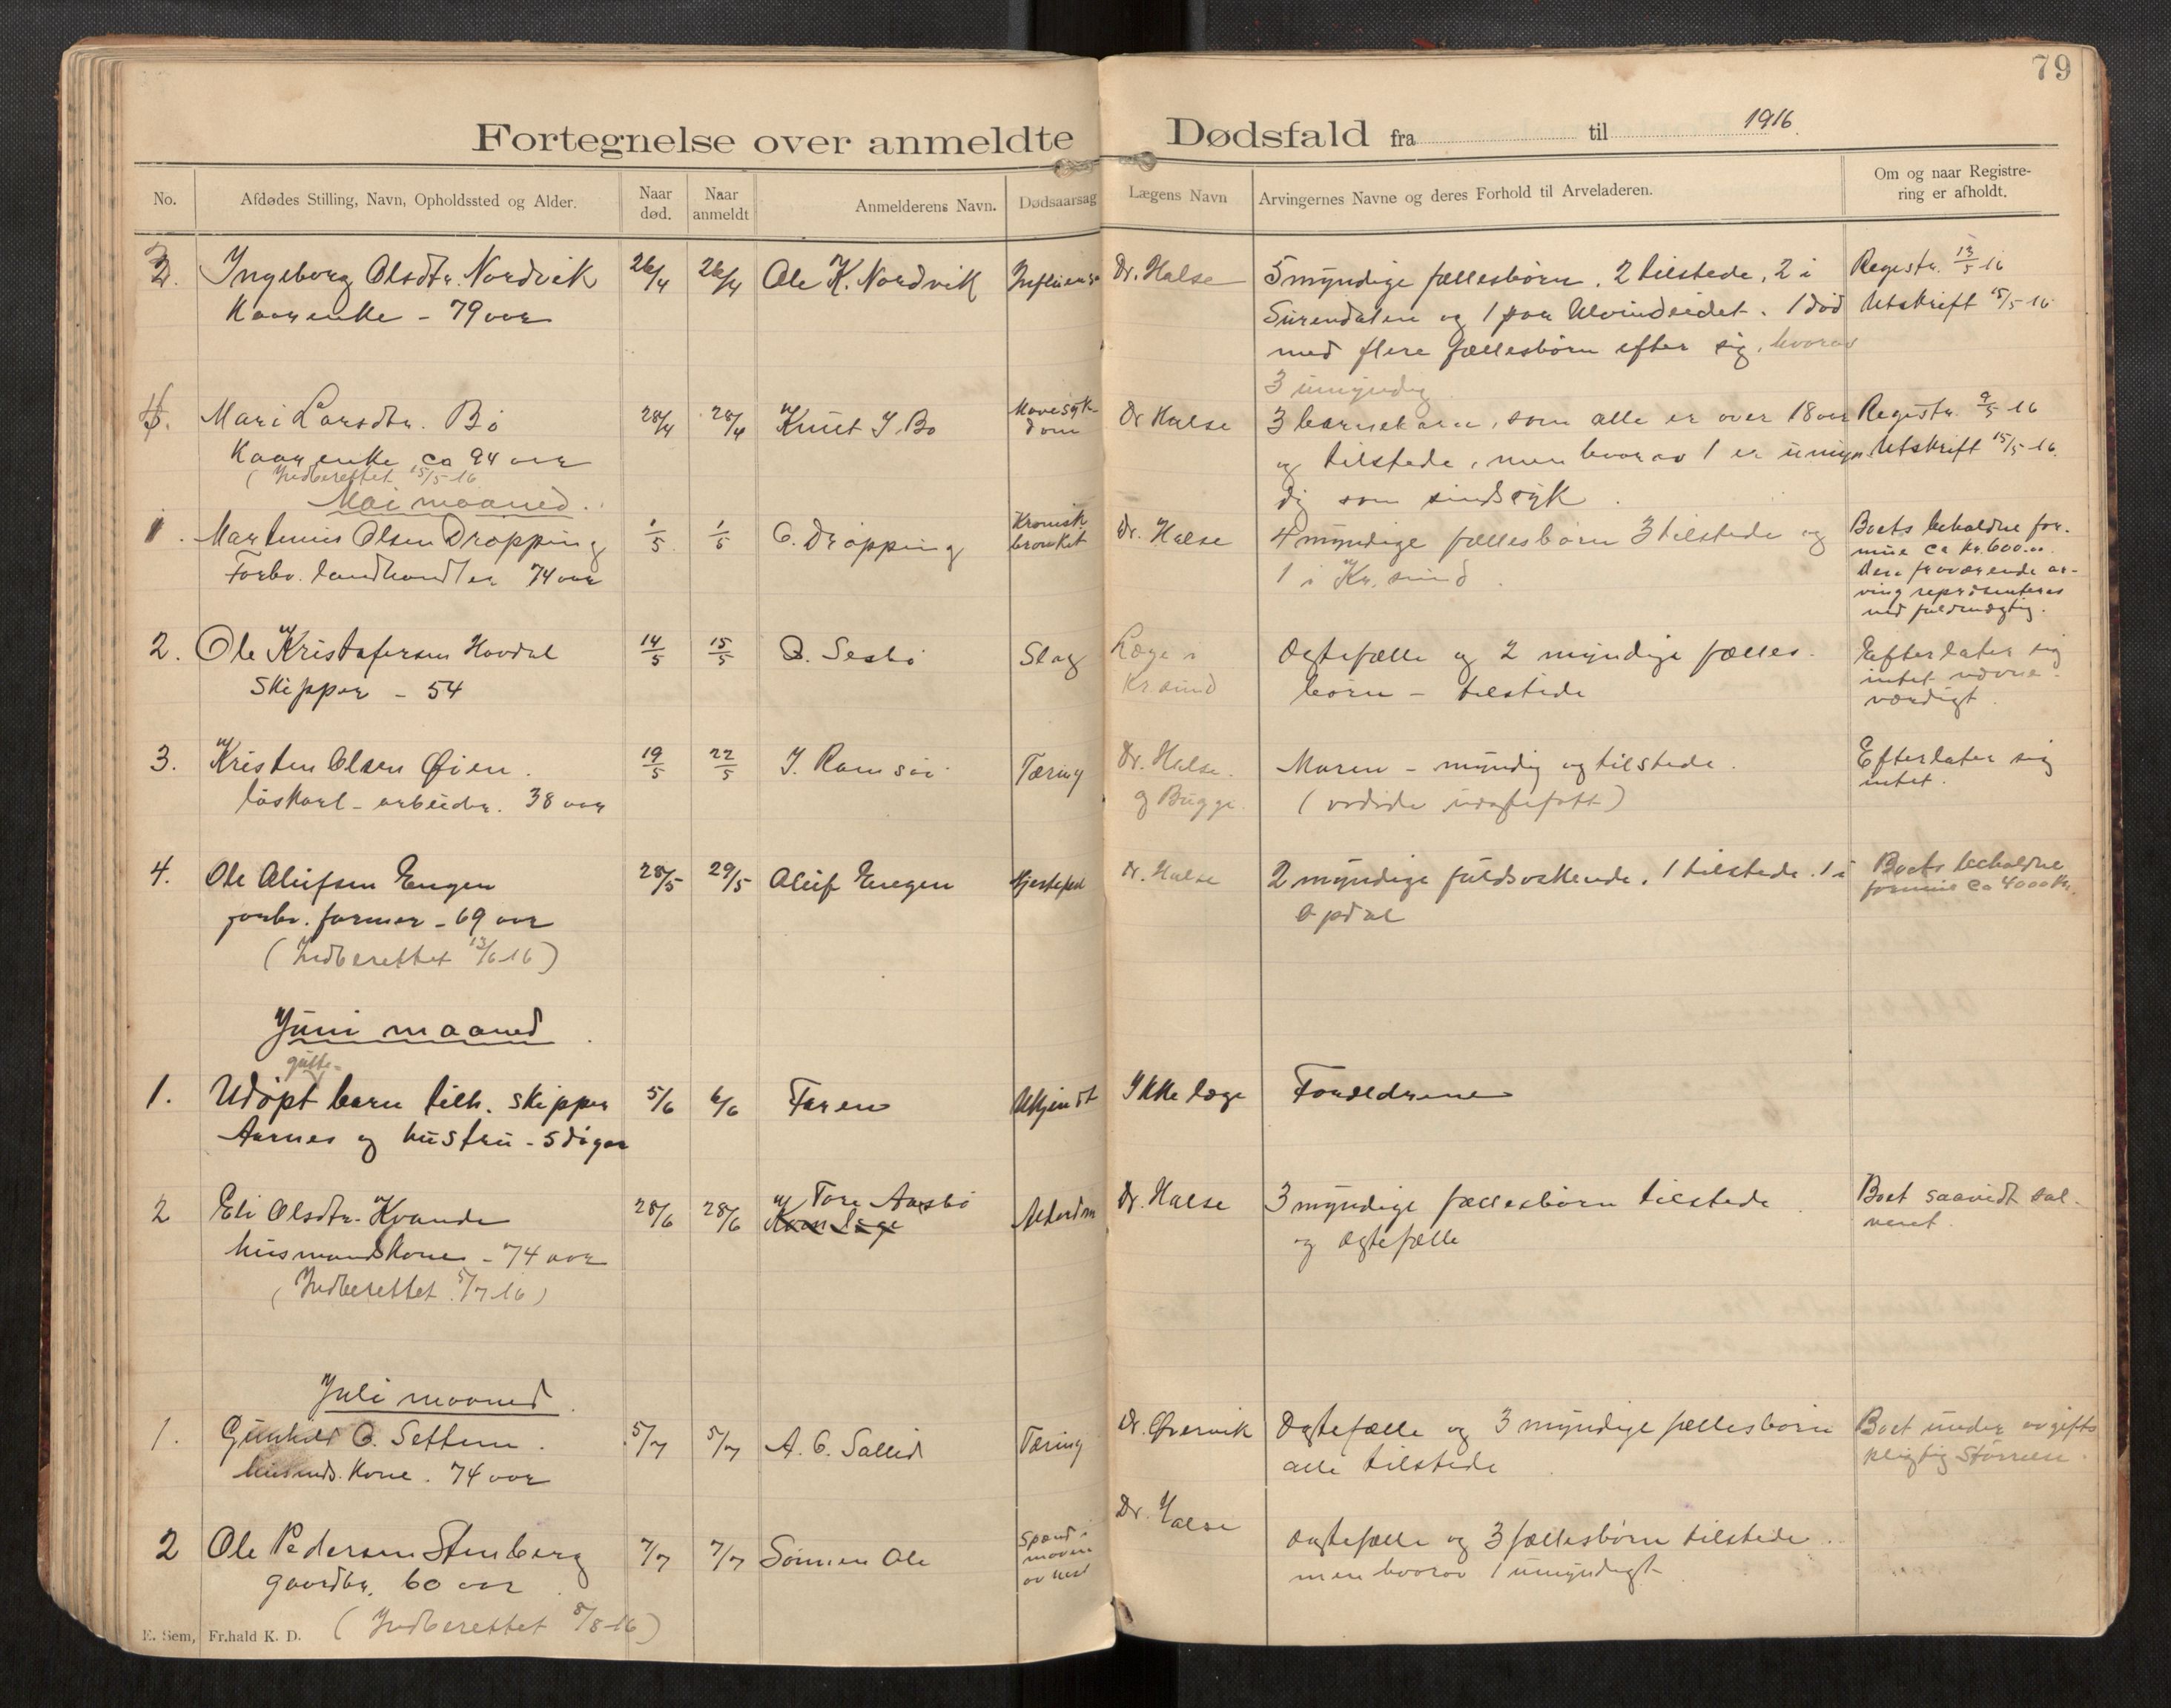 79
Fortegnelse over anmeldte Dødsfald fra til 1916.
No. Afdødes Stilling, Navn, Opholdssted og Alder. Naar død. Naar anmeldt Anmelderens Navn. Dødsaarsag Lægens Navn Arvingernes Navne og deres Forhold til Arveladeren. Om og naar Registrering er afholdt.
Ingeborg Olsdtr. Nordvik 26/4 26/4 Ole K. Nordvik Influensa Dr. Halse 5 myndige fællesbørn. 2 tilstede, 2 i Registr. 13/5 16
Kaarenke - 79 aar Surendalen og 1 paa Ulvundeidet. 1 død Utskrift 15/5-16
med flere fællesbørn efter sig, hvorav
3 umyndig
Mari Larsdtr. Bø 28/4 28/4 Knut J. Bø Mavesyk- Dr Halse 3 barnebarn, som alle er over 18 aar Registr. 9/5 16
dom
Kaarenke ca 94 aar og tilstede, men hvorav 1 er umyn- Utskrift 15/5-16.
(Indberettet 15/5-16 dig som sindssyk.
Mai maaned.
1. Martinus Olsen Drøpping 1/5 1/5 O. Drøpping Kronisk Dr. Halse 4 myndige fællesbørn 3 tilstede og Boets beholdne for-
bronkit mue ca Kr. 600.00.
Forhv. landhandler 74 aar 1 i Kr.sund. Den fraværende ar-
ving repræsenteres
ved fuldmægtig.
2. Ole Kristofersen Hovdal 14/5 15/5 O. Sesbø Slag Læge i Ægtefælle og 2 myndige fælles- Efterlater sig
Skipper - 54 Kr.sund børn - tilstede intet nævne-
værdigt.
3. Kristen Olsen Øien. 19/5 22/5 J. Ramsøi Tæring Dr. Halse. Moren - myndig og tilstede. Efterlater sig
løskarl - arbeider. 38 aar og Bugge. intet.
4. Ole Olufsen Engen 28/5 29/5 Oluf Engen Hjertefeil Dr. Halse 2 myndige fuldsøskende. 1 tilstede. 1 i Boets beholdne
forhv. farmer - 69 aar Opdal formue ca 4000 Kr.
(Indberettet 13/6 16)
Juni maaned.
gutte-
1. Udøpt barn tilh. skipper 5/6 6/6 Faren Ukjendt Ikke læge Forældrene
Aarnes og hustru - 5 dager
2 Eli Olsdtr. Kvande 28/6 28/6 Tore Aasbø Alderdom Dr. Halse 3 myndige fællesbørn tilstede. Boet saavidt sol-
husmandskone - 74 aar og ægtefælle vent.
(Indberettet 5/7 16)
Juli maaned.
1. Gunhild O. Settem. 5/7 5/7 A. O. Sallid Tæring Dr. Øvervik Ægtefælle og 3 myndige fællesbørn Boet under avgifts
husmds.kone. 74 aar alle tilstede pligtig Størrelse.
2 Ole Pedersen Stenberg 7/7 7/7 Sønnen Ole Spænd i Dr. Halse Ægtefælle og 3 fællesbørn tilstede.
maven
gaardbr. 60 aar av hest men hvorav 1 umyndigt
(Indberettet 8/8-16)
E. Sem, Fr.hald K. D.